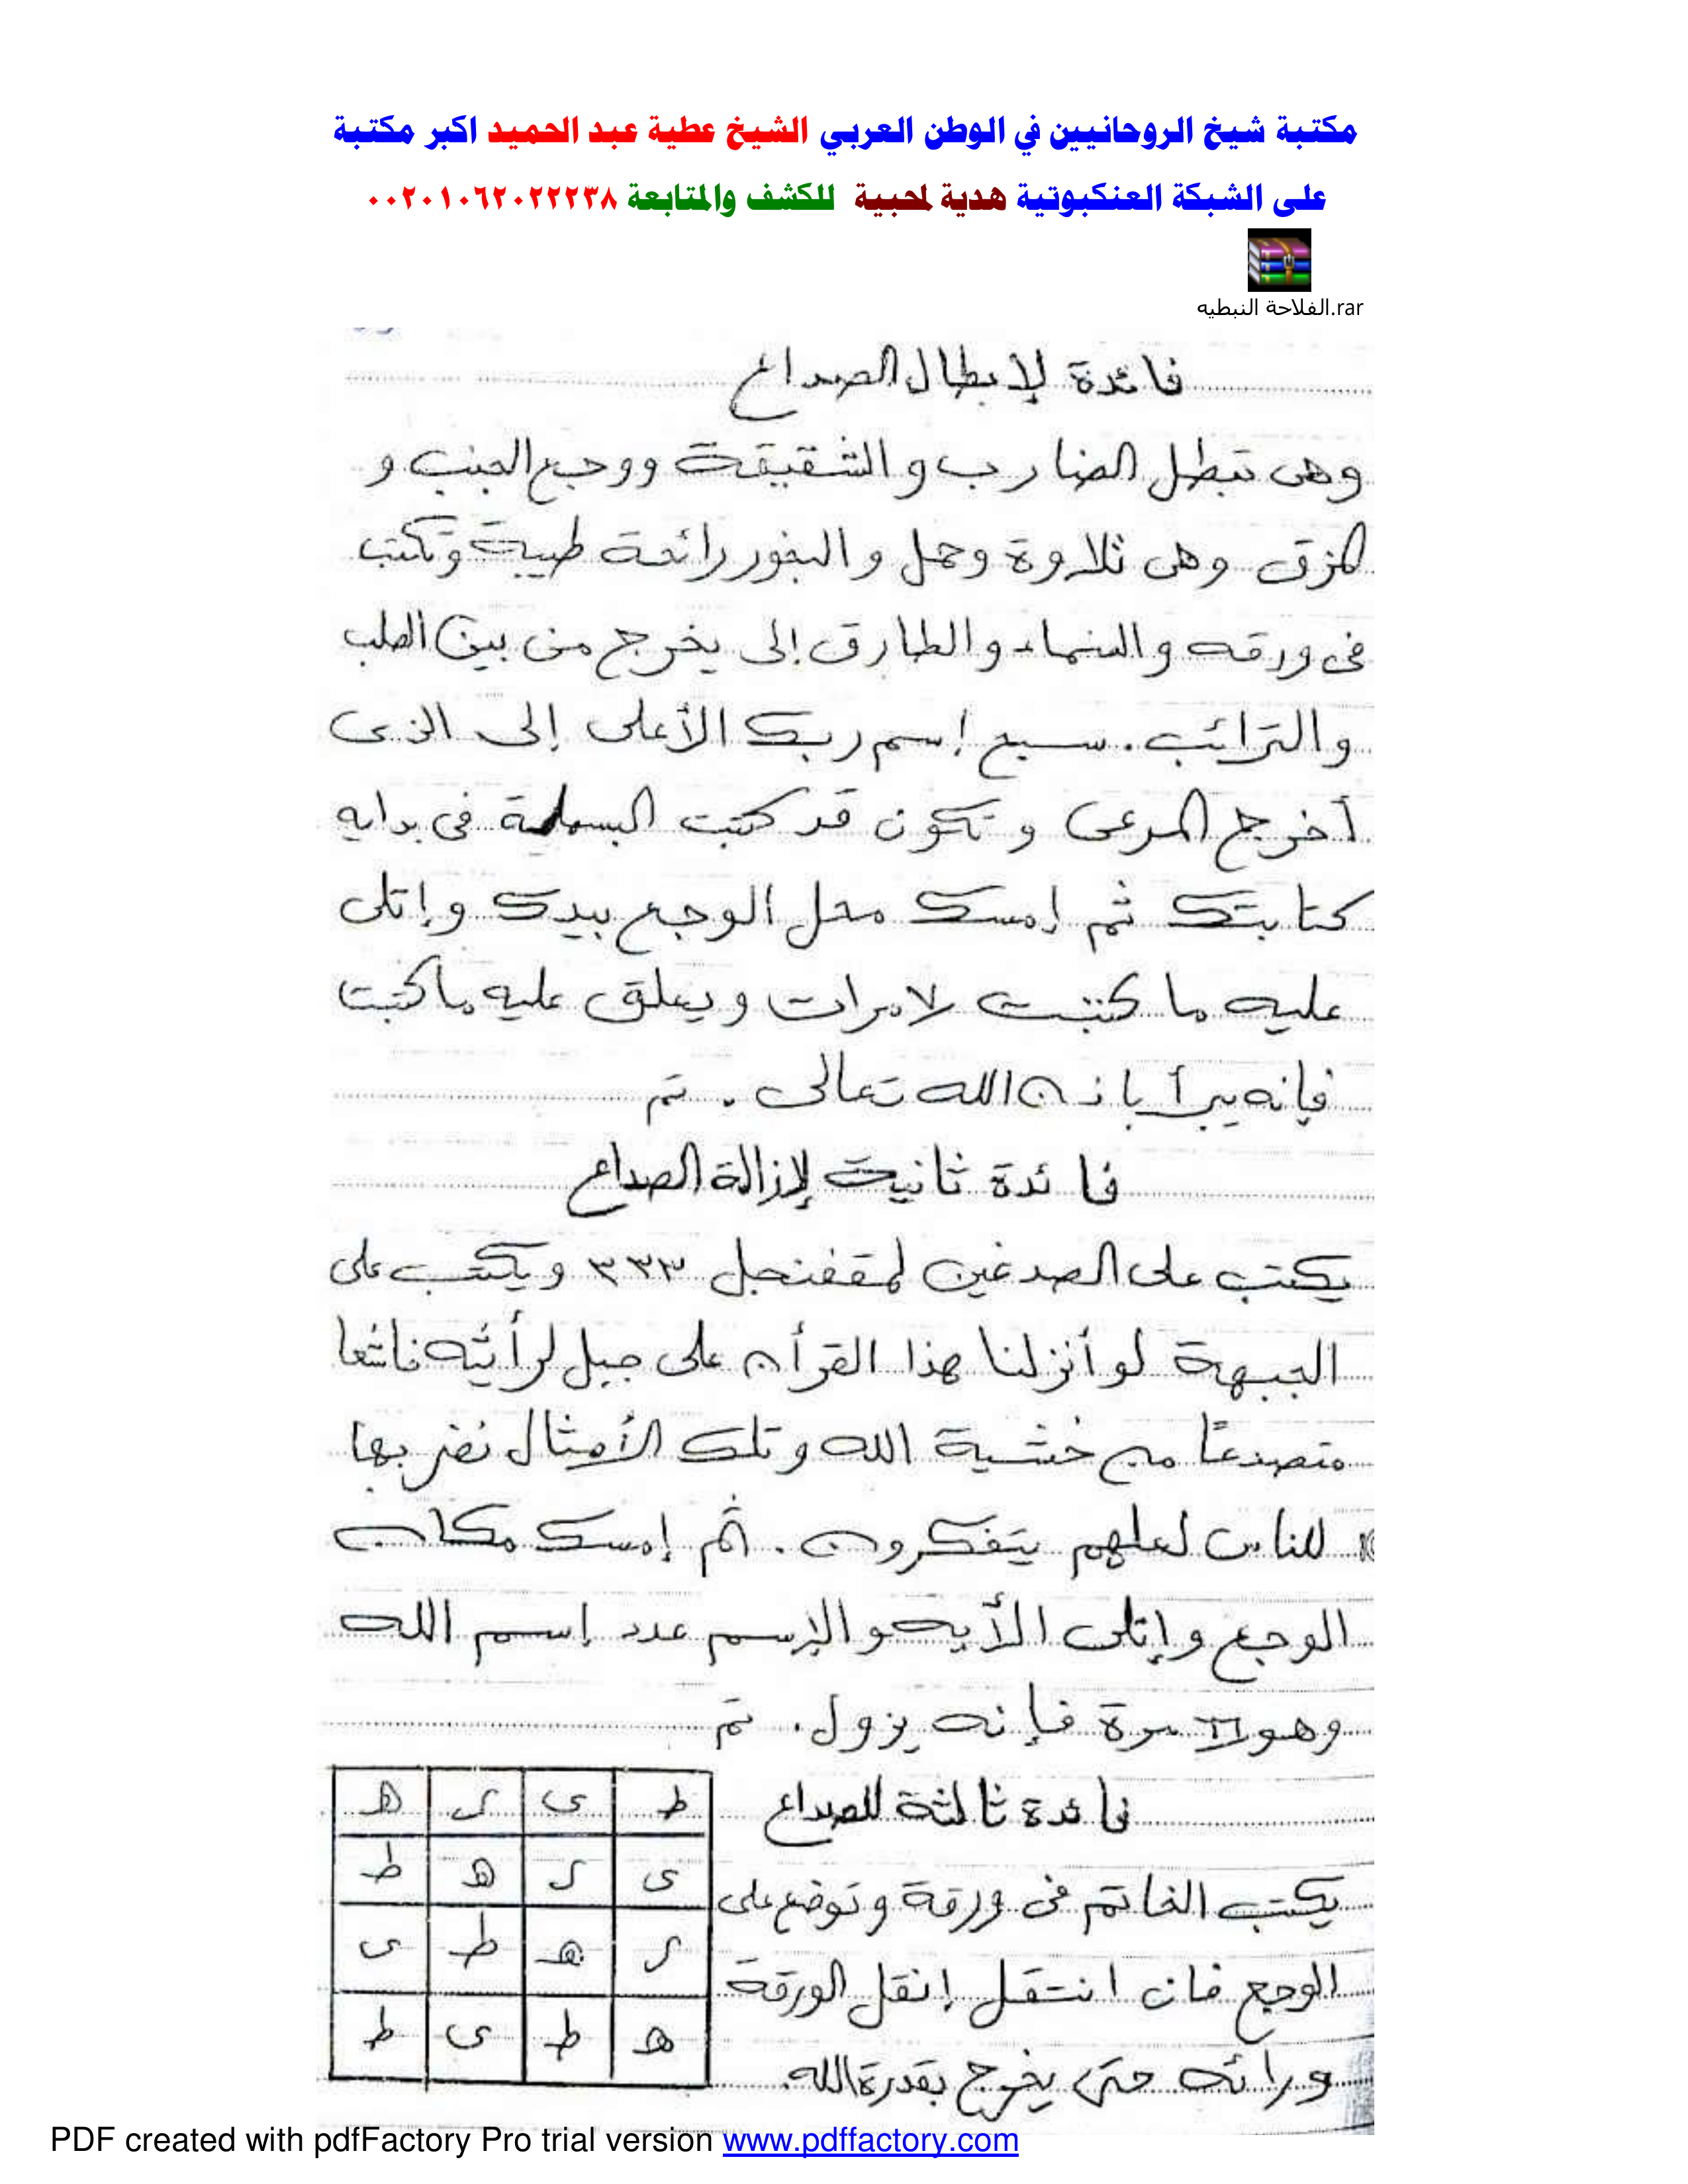 مكتبة شيخ الروحانيين في الوطن العربي الشيخ عطية عبد الحميد اكبر مكتبة
على الشبكة العنكبوتية هدية لمحبية للكشف والمتابعة ٠٠٢٠١٠٦٢٠٢٢٢٣٨
الفلاحة النبطيه.rar
فائدة لإبطال الصداع
وهى تبطل الضارب والشقيقة ووجع الجنب و
المزق وهى تلاوة وحمل والبخور رائحة طيبة وتكتب
فى ورقه والسماء والطارق إلى يخرج من بين الصلب
والترائب. سبح إسم ربك الأعلى إلى الذى
أخرج المرعى وتكون قد كتبت البسملة فى بدايه
كتابتك ثم إمسك محل الوجع بيدك وإتلى
عليه ما كتبت ٧ مرات ويعلق عليه ما كتبت
فإنه يبرأ باذن الله تعالى. تم
فائدة ثانية لإزالة الصداع
يكتب على الصدغين لمقفنجل ٣٣٣ ويكتب على
الجبهة لو أنزلنا هذا القرأن على جبل لرأيته خاشعا
متصدعاً من خشية الله وتلك الأمثال نضربها
للناس لعلهم يتفكرون. ثم إمسك مكان
الوجع وإتلى الأيه والإسم عدد إسم الله
وهو ٦٦ مرة فإنه يزول. تم
فائدة ثالثة للصداع
يكتب الخاتم فى ورقة وتوضع على
الوجع فان انتقل إنقل الورقة
ورائه حتى يخرج بقدرة الله.
ط ى ك ه
ى ك ه ط
ك ه ط ى
ه ط ى ط
PDF created with pdfFactory Pro trial version www.pdffactory.com